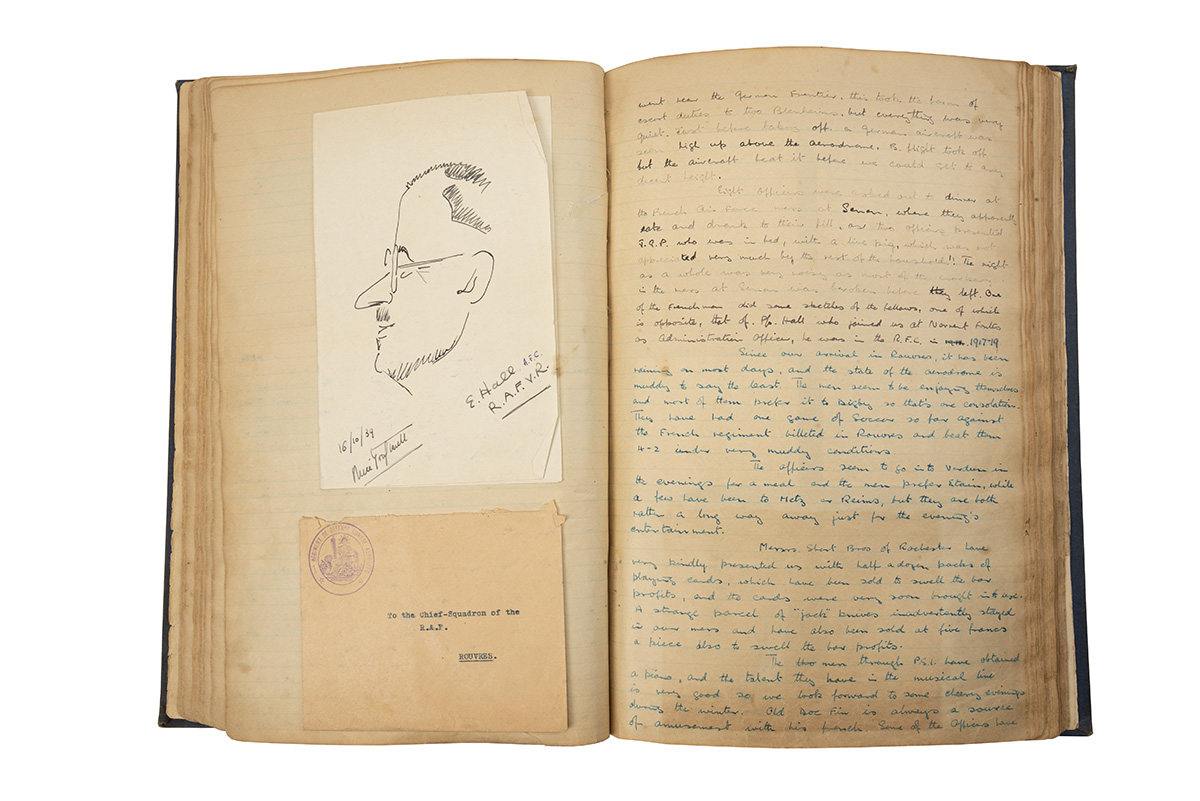 E. Hall A.F.C.
R.A.F.V.R.
16/10/39
To the Chief-Squadron of the
R.A.F.
ROUVRES.
went near the German Frontier, this took the form of
escort duties to two Blenheims, but everything was very
quiet. Just before taking off a German aircraft was
seen high up above the aerodrome. B. flight took off
but the aircraft beat it before we could get to any
decent height.
Eight Officers were asked out to dinner at
the French Air Force mess at Senon, where they apparently
eate and drank to their fill, as two officers presented
who was in bed, with a live pig, which was not
appreciated very much by the rest of the households!! The night
as a whole was very noisy as most of the crockery
in the mess at Senon was broken before they left. One
of the Frenchman did some sketches of the fellows, one of which
is opposite, that of P/o Hall who joined us at. Norrent Fontes
as Administration Officer, he was in the R.F.C. in 1917-19
Since our arrival in Rouvres, it has been
raining on most days, and the state of the aerodrome is
muddy to say the least. The men seem to be enjoying themselves
and most of them prefer it to Digby so that's one consolation.
They have had one game of Soccer so far against
the French regiment billeted in Rouvres and beat them
4-2 under very muddy conditions.
The officers seem to go into Verdun in
the evenings for a meal and the men prefer Etain, while
a few have been to Metz or Reims, but they are both
rather a long way away just for the evening's
entertainment.
Messrs. Short Bros of Rochester have
very kindly presented us with half a dozen packs of
playing cards, which have been sold to swell the bar
profits, and the cards were very soon brought into use.
A strange parcel of "jack" knives inadvertently stayed
in our mess and have also been sold at five francs
a piece also to swell the bar profits.
The men through P.S.I. have obtained
a piano, and the talent they have in the musical line
is very good so we look forward to some cheery evenings
during the winter. Old Doc Fin is always a source
of amusement with his french. Some of the Officers have